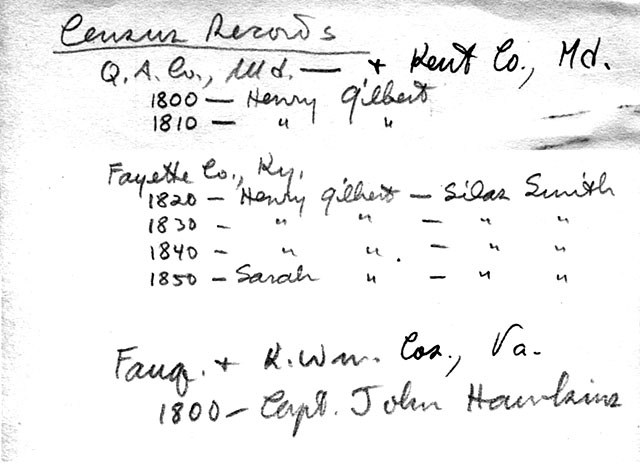 Census Records
Q. A. Co., Md. — + Kent Co., Md.
1800 — Henry Gilbert
1810 — " "
Fayette Co., Ky.
1820 — Henry Gilbert — Silas Smith
1830 - " " — " "
1840 - " " . — " "
1850 — Sarah " — " "
Fauq. + K. Wm. Cos., Va.
1800 — Capt. John Hawkins